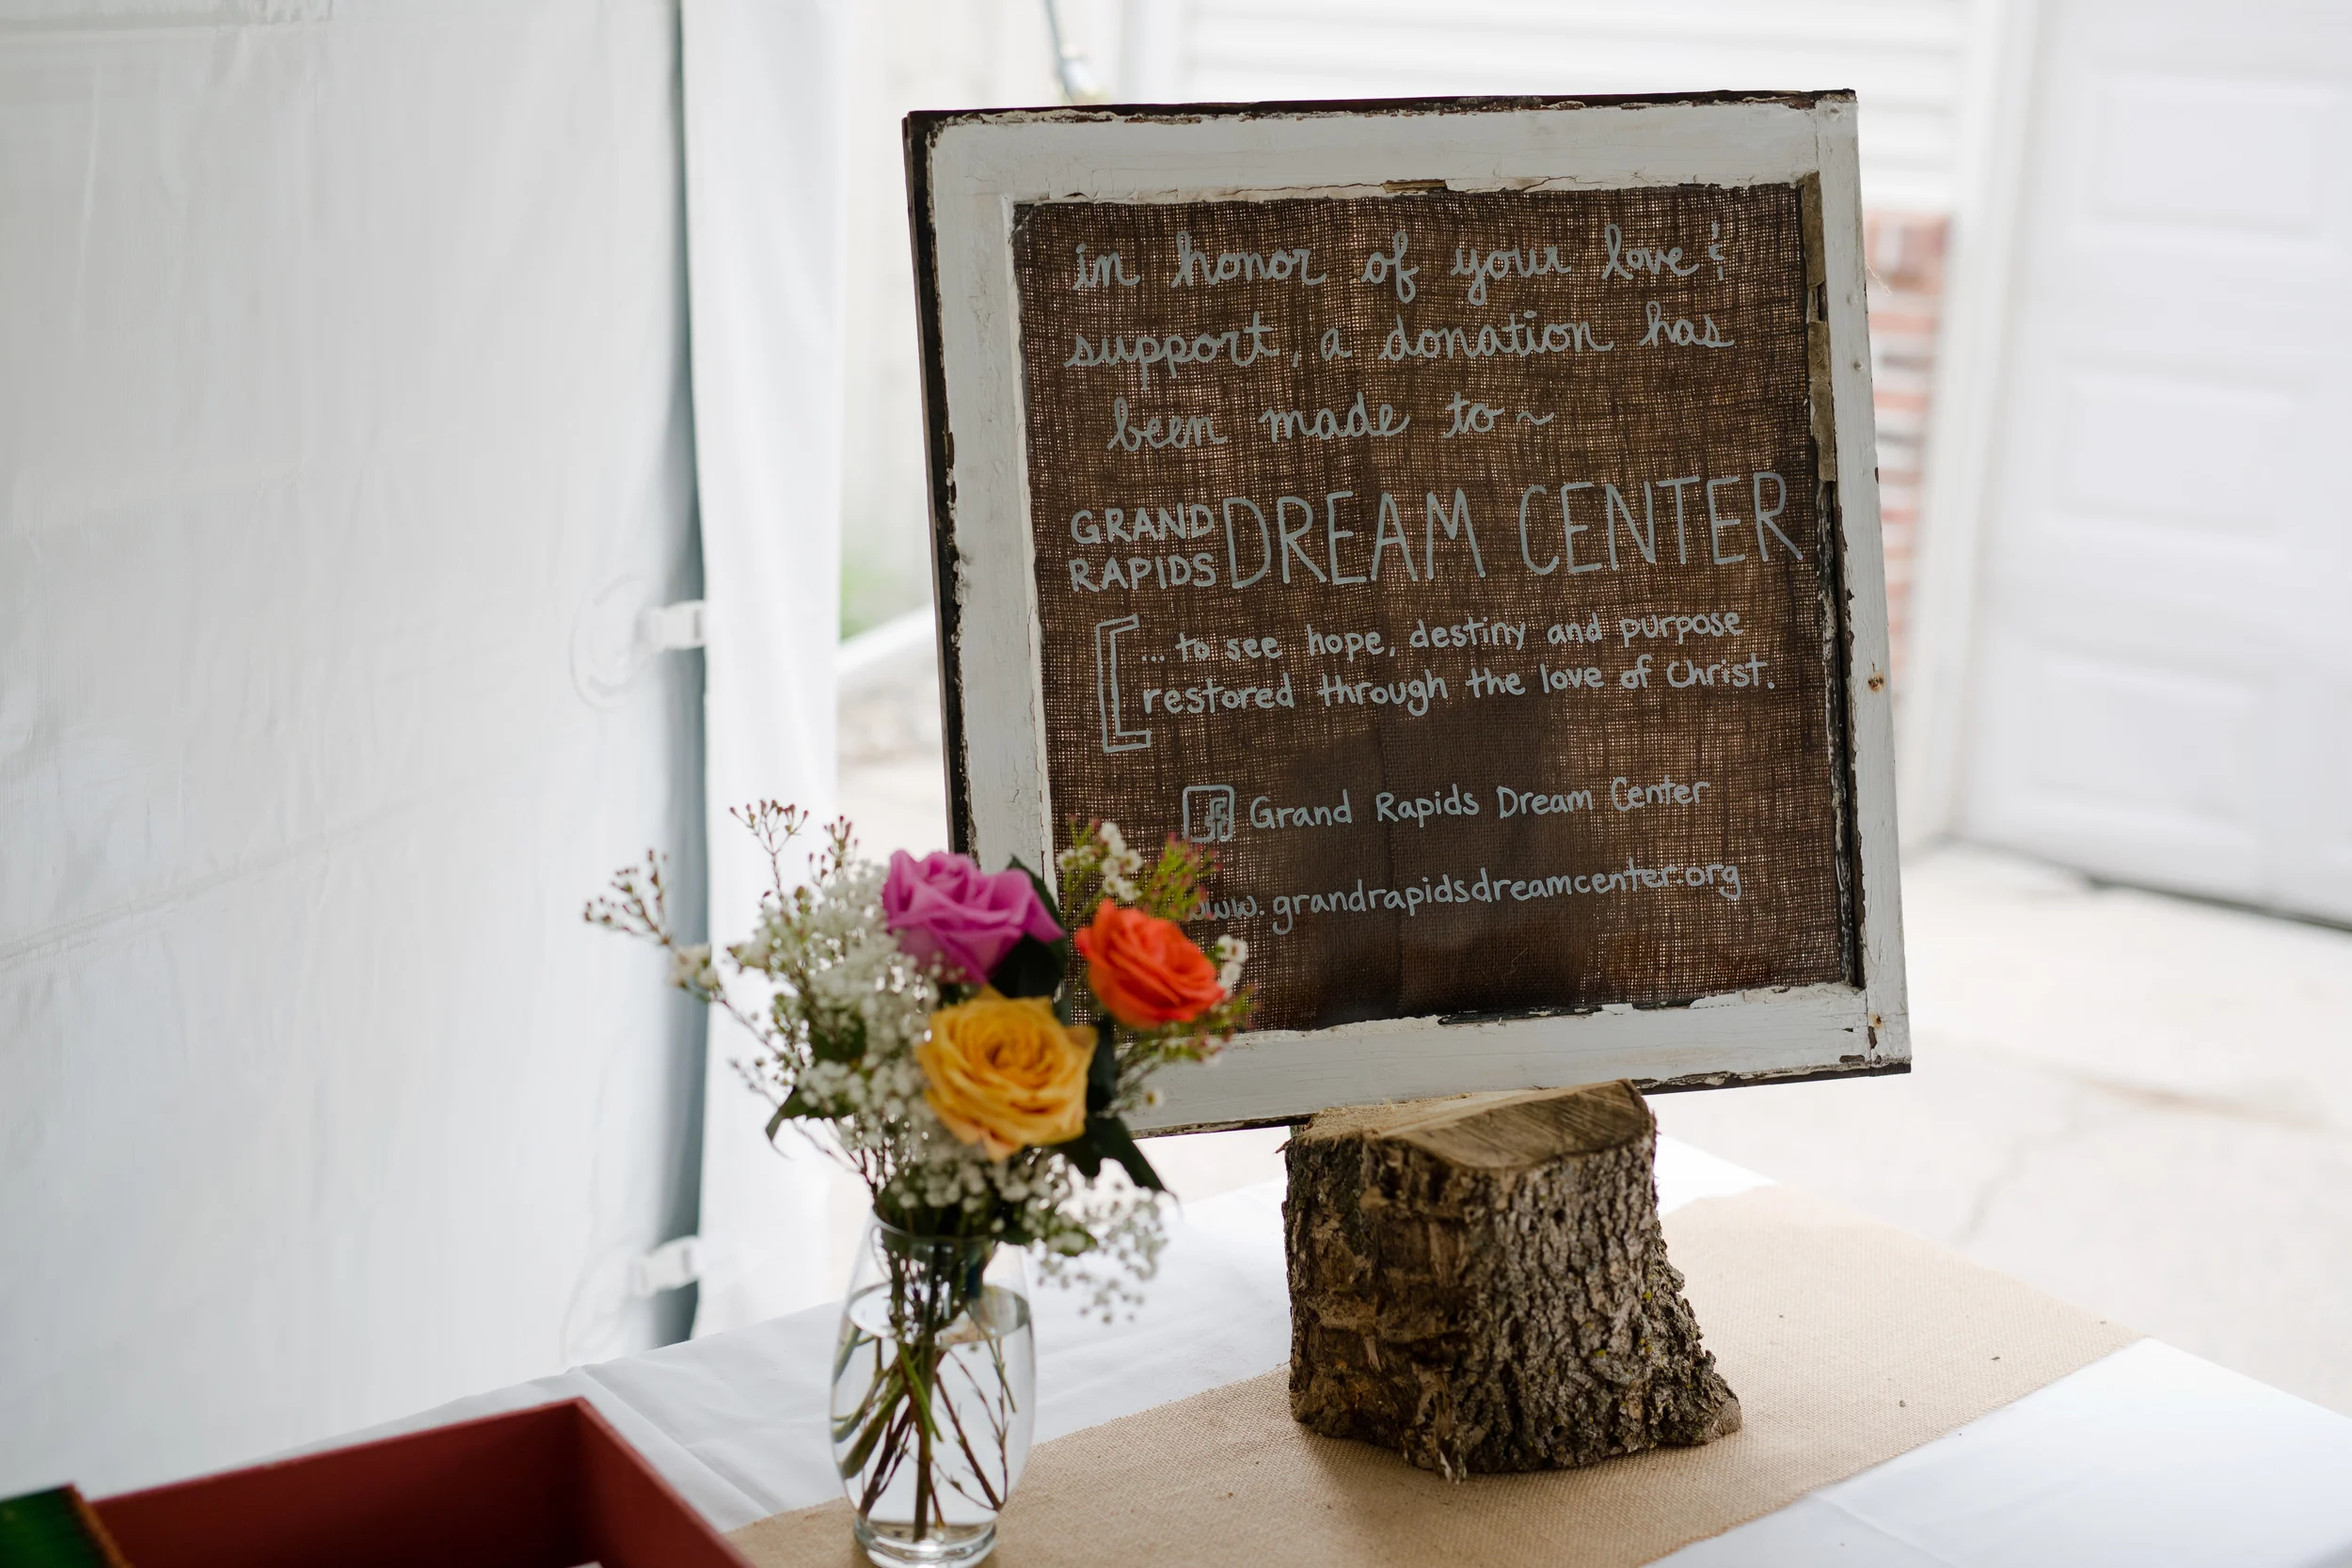 in honor of your love &
support, a donation has
been made to ~
GRAND
RAPIDS DREAM CENTER
... to see hope, destiny and purpose
restored through the love of Christ.
f Grand Rapids Dream Center
www.grandrapidsdreamcenter.org